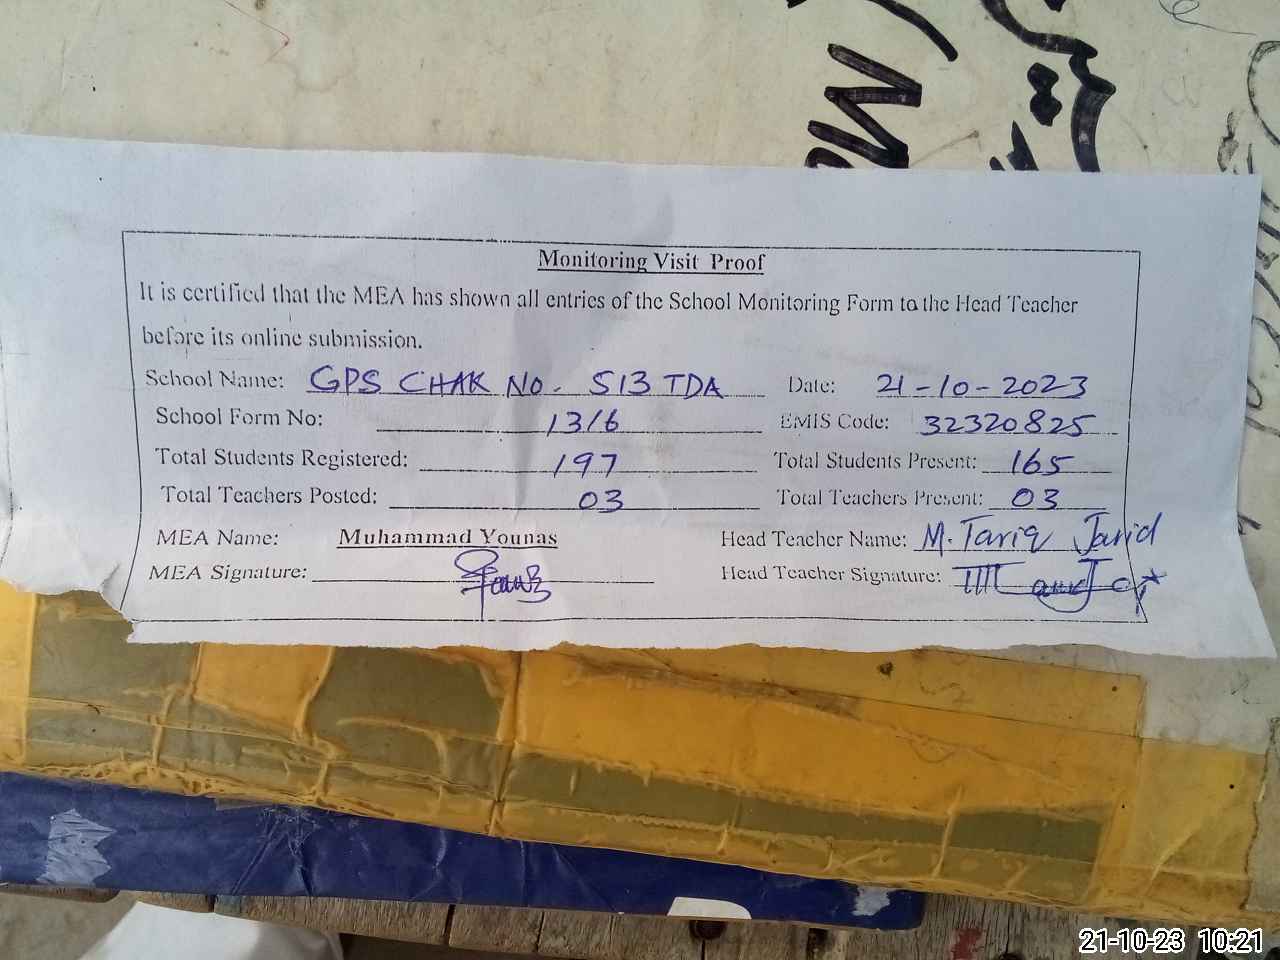 Monitoring Visit Proof
It is certified that the MEA has shown all entries of the School Monitoring Form to the Head Teacher
before its online submission.
School Name: GPS CHAK NO. 513 TDA Date: 21-10-2023
School Form No: 1316 EMIS Code: 32320825
Total Students Registered: 197 Total Students Present: 165
Total Teachers Posted: 03 Total Teachers Present: 03
MEA Name: Muhammad Younas Head Teacher Name: M. Tariq Javid
MEA Signature: Head Teacher Signature:
21-10-23 10:21